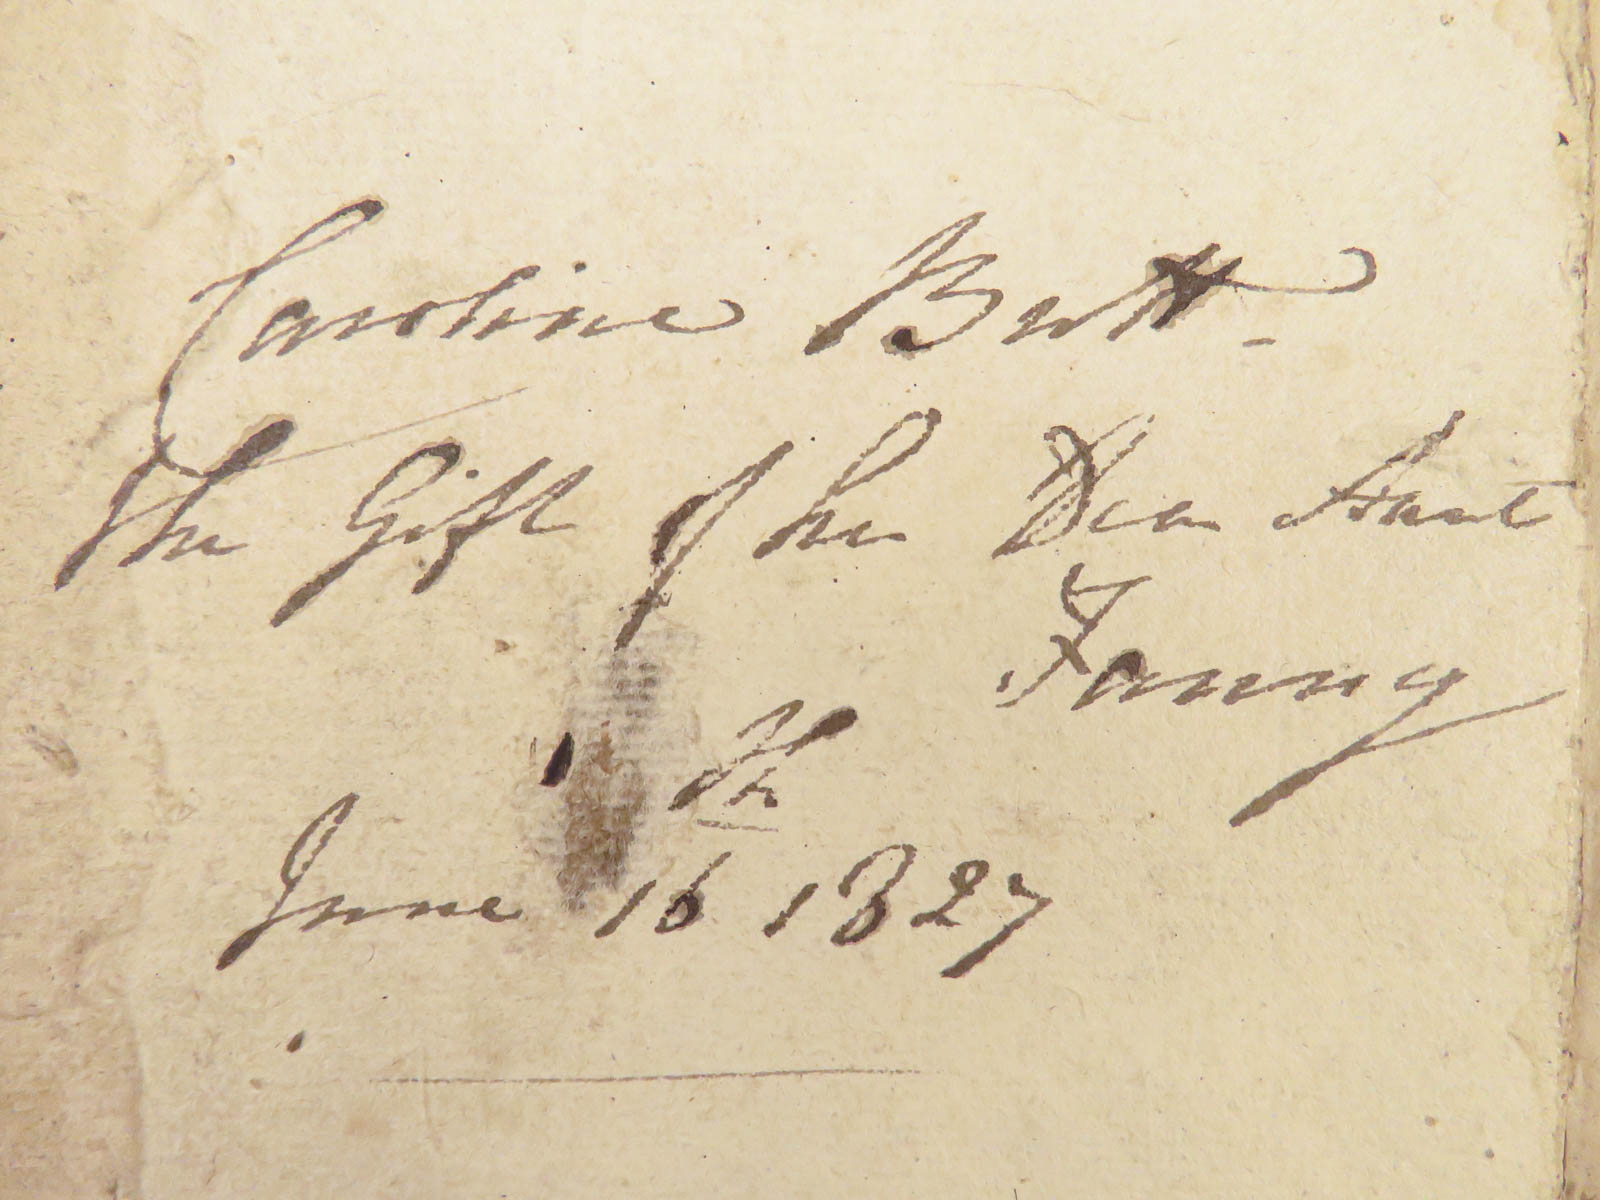 Caroline Butt -
The Gift of her Dear Aunt
Fanny
th
June 16 1827